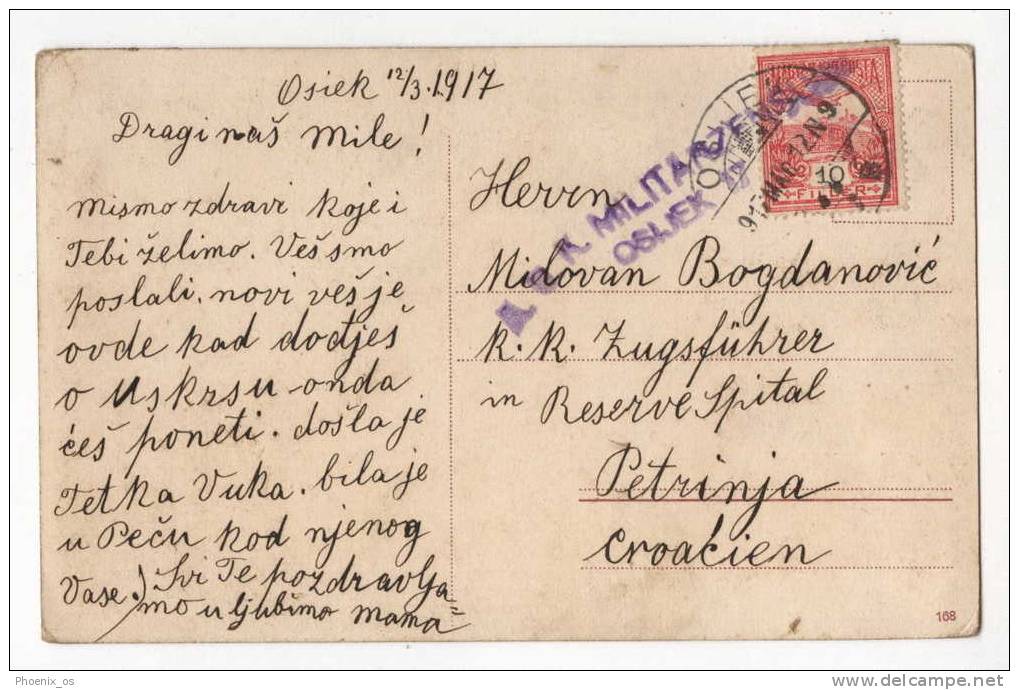 Osiek 12/3.1917
Dragi naš Mile!
Mismo zdravi koje i
Tebi želimo. Veš smo
poslali. novi veš je
ovde kad dodješ
o Uskrsu onda
ćeš poneti. došla je
Tetka Vuka. bila je
u Peču kod njenog
Vase.) Svi Te pozdravlja
mo u ljubimo mama
Herrn
Milovan Bogdanović
k. k. Zugsführer
in Reserve Spital
Petrinja
Croaćien
K. MILITÄRZENSUR
OSIJEK
OSIJEK
917 MAR. 12 N 9
10
FILLER
168
Phoenix_os
delcampe.net